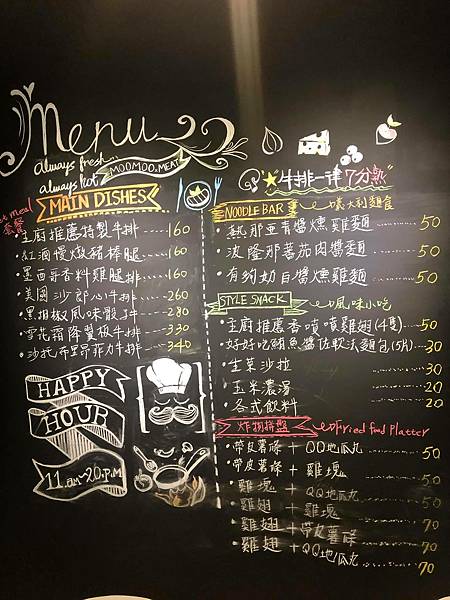 Menu
always fresh...
always hot
MOOMOO.MEAT
meal
套餐
MAIN DISHES
・主廚推薦特製牛排---160
・紅酒慢燉豬棒腿---160
・墨西哥香料雞腿排---160
・美國沙郎心牛排---260
・黑胡椒風味骰子牛---280
・雪花霜降翼板牛排---330
・沙托布里昂菲力牛排---340
HAPPY
HOUR
11.am~20.p.m
"★牛排一律7分熟"
NOODLE BAR 義大利麵食
・熱那亞青醬燻雞麵 50
・波隆那蕃茄肉醬麵 50
・有約奶白醬燻雞麵 50
STYLE SNACK 風味小吃
・主廚推薦香噴噴雞翅(4隻) 50
・好好吃鮪魚醬佐軟法麵包(5片) 30
・生菜沙拉 30
・玉米濃湯 20
・各式飲料 20
炸物拼盤 Fried food Platter
・帶皮薯條+QQ地瓜丸 50
・帶皮薯條+雞塊 50
・雞塊+QQ地瓜丸 50
・雞翅+雞塊 70
・雞翅+帶皮薯條 70
・雞翅+QQ地瓜丸 70